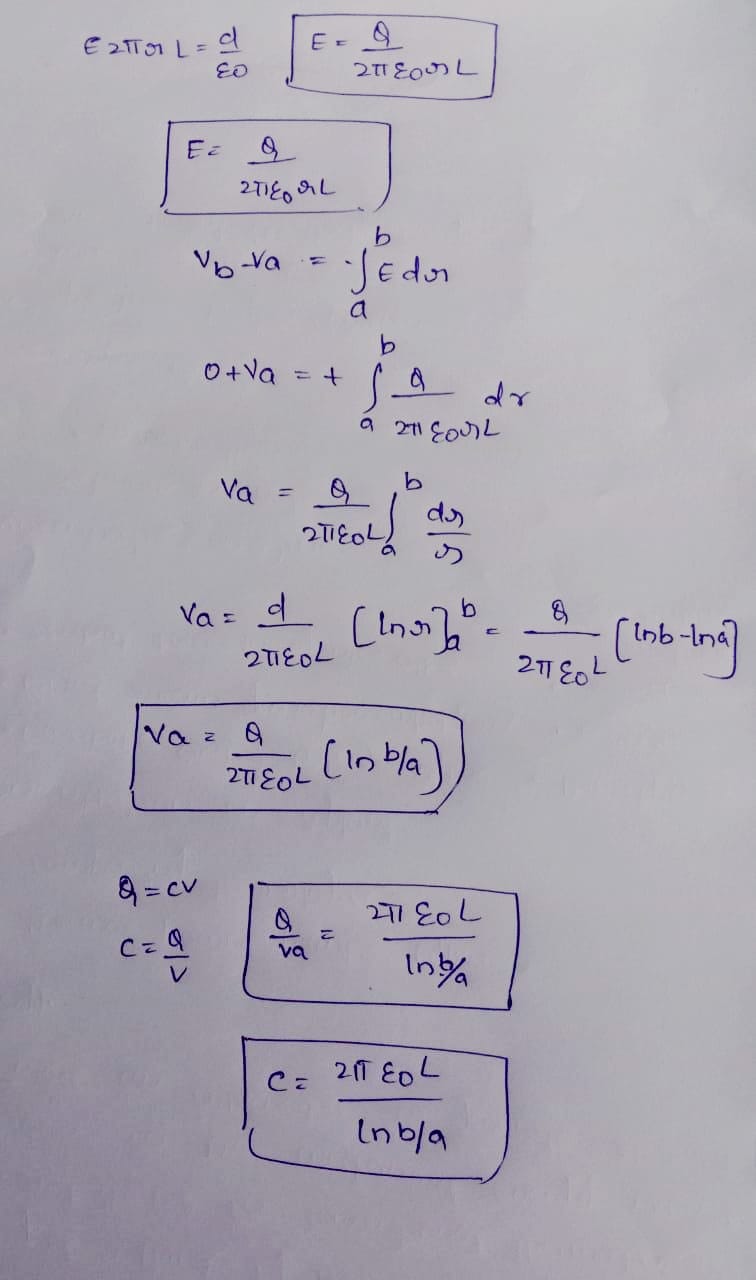 E 2πr L = q/ε0 E = Q/2πε0rL
E = Q/2πε0rL
Vb - Va = -∫ₐᵇ E dr
0 + Va = + ∫ₐᵇ Q/2πε0rL dr
Va = Q/2πε0L ∫ₐᵇ dr/r
Va = q/2πε0L [ln r]ₐᵇ = Q/2πε0L [ln b - ln a]
Va = Q/2πε0L [ln b/a]
Q = CV
C = Q/V Q/Va = 2πε0L/ln b/a
C = 2πε0L/ln b/a